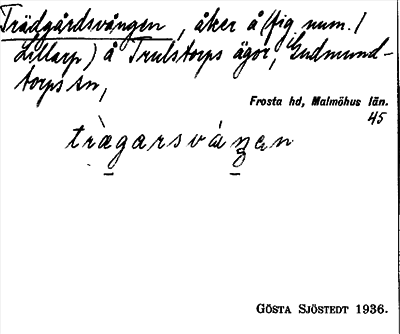 Trädgårdsvången, åker å (fig. num. 1
Lillarp) å Trulstorps ägor, Gudmund-
torps sn,
Frosta hd, Malmöhus län.
45
trægarsváŋen
GÖSTA SJÖSTEDT 1936.